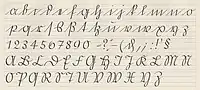 a b c d e f g h i j k l m n o
p q r s ß t u v w x y z
1 2 3 4 5 6 7 8 9 0 - ? ; ' ( & / , : ! § 
A B C D E F G H I J K L M N
O P Q R S T U V W X Y Z